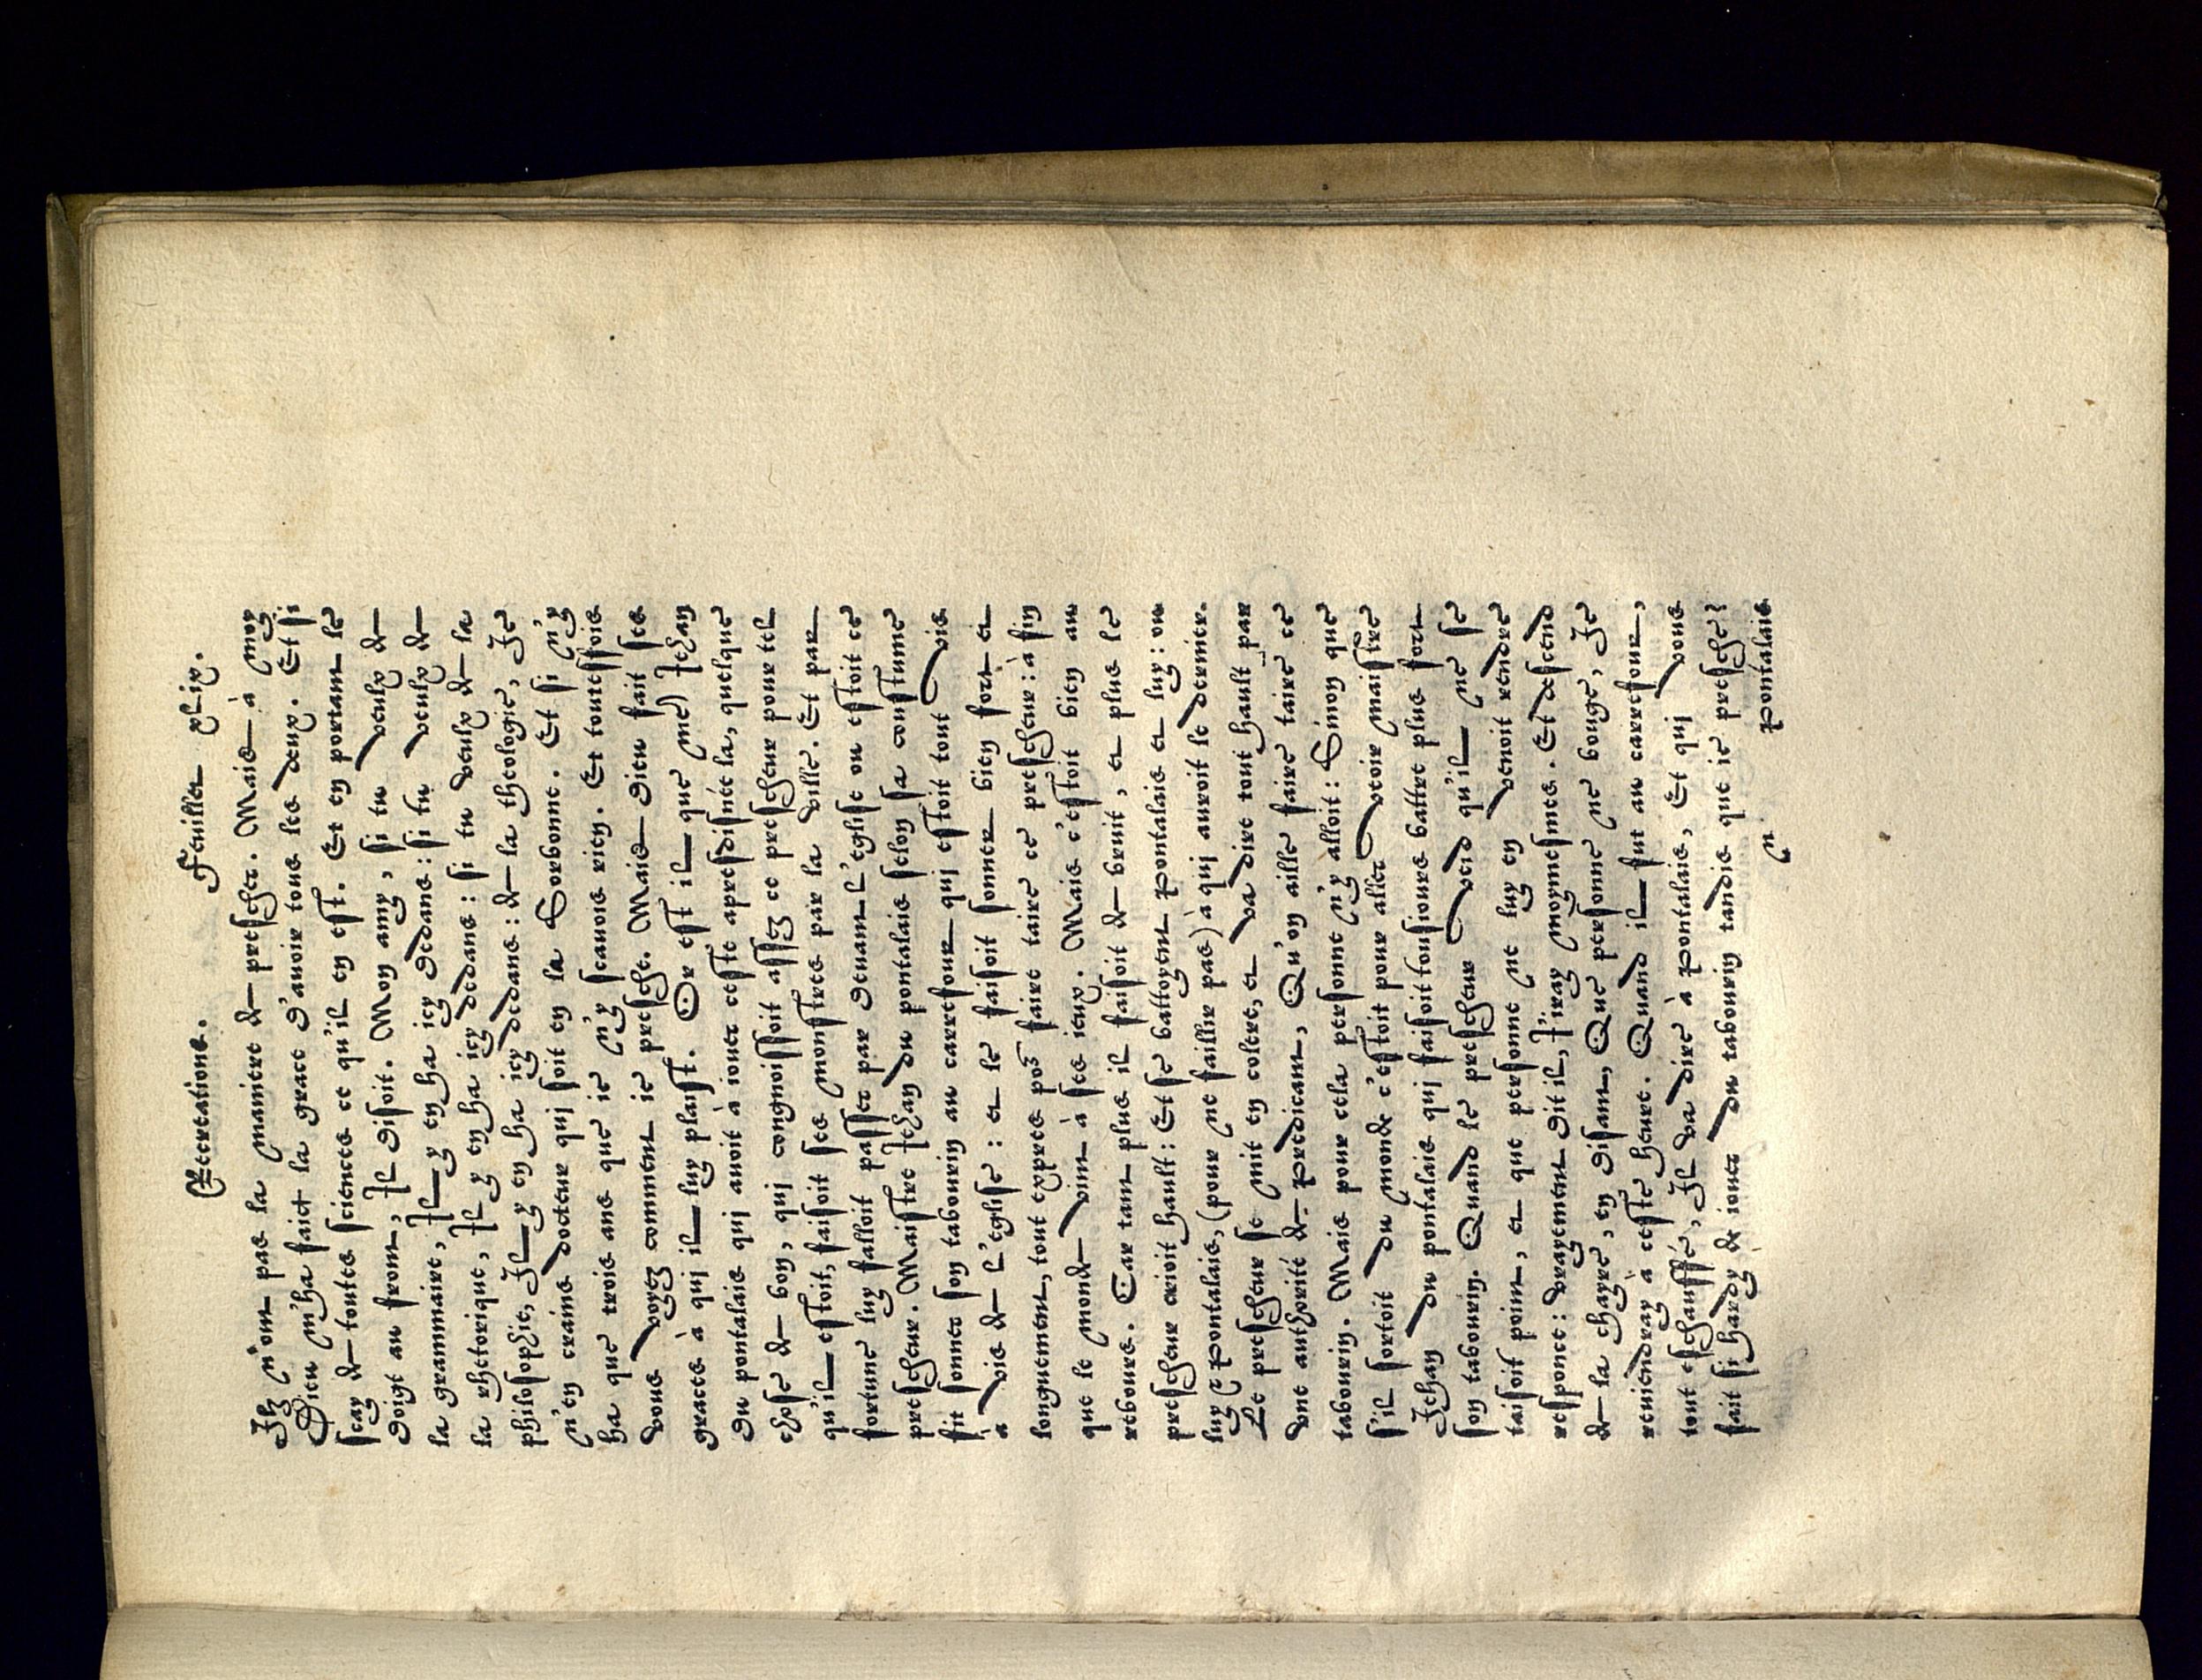 Recreations. Feuillet xlix.
Ilz n'ont pas la maniere de prescher. Mais à moy
Dieu m'ha faict la grace d'auoir tous les deux. Et si
scay de toutes sciences ce qu'il en est. Et en portant le
doigt au front, Il disoit. Mon amy, si tu veulx de
la grammaire, Il y en ha icy dedans: si tu veulx de
la rhetorique, Il y en ha icy dedans: si tu veulx de la
philosophie, Il y en ha icy dedans: de la theologie, Je
n'en crains docteur qui soit en la Sorbonne. Et si n'y
ha que trois ans que ie n'y scauois rien. Et toutesfois
vous voyez comment ie presche. Mais Dieu fait ses
graces à qui il luy plaist. Or est il que me) Jehan
du pontalais qui auoit à iouer ceste apresdisnée la, quelque
chose de bon, qui congnoissoit assez ce prescheur pour tel
qu'il estoit, faisoit ses monstres par la ville. Et par
fortune luy falloit passer par deuant l'eglise ou estoit ce
prescheur. Maistre Jehan du pontalais selon sa coustume
fit sonner son tabourin au carrefour qui estoit tout vis
a vis de l'eglise: et le faisoit sonner bien fort et
longuement, tout expres poᷣ faire taire ce prescheur: à fin
que le monde vint à ses ieux. Mais c'estoit bien au
rebours. Car tant plus il faisoit de bruit, et plus le
prescheur crioit hault: Et se battoyent Pontalais et luy: ou
luy & Pontalais, (pour ne faillir pas) à qui auroit le dernier.
Le prescheur se mit en colere, et va dire tout hault par
vne authorité de predicant, Qu'on aille faire taire ce
tabourin. Mais pour cela personne n'y alloit: Sinon que
s'il sortoit du monde c'estoit pour aller veoir maistre
Jehan du pontalais qui faisoit tousiours battre plus fort
son tabourin. Quand le prescheur veid qu'il ne se
taisoit point, et que personne ne luy en venoit rendre
response: vrayement dit il, I'iray moymesmes. Et descend
de la chayre, en disant, Que personne ne bouge, Je
reuiendray à ceste heure. Quand il fut au carrefour,
tout eschauffé, Il va dire à Pontalais, Et qui vous
fait si hardy de iouer du tabourin tandis que ie presche?
n Pontalais